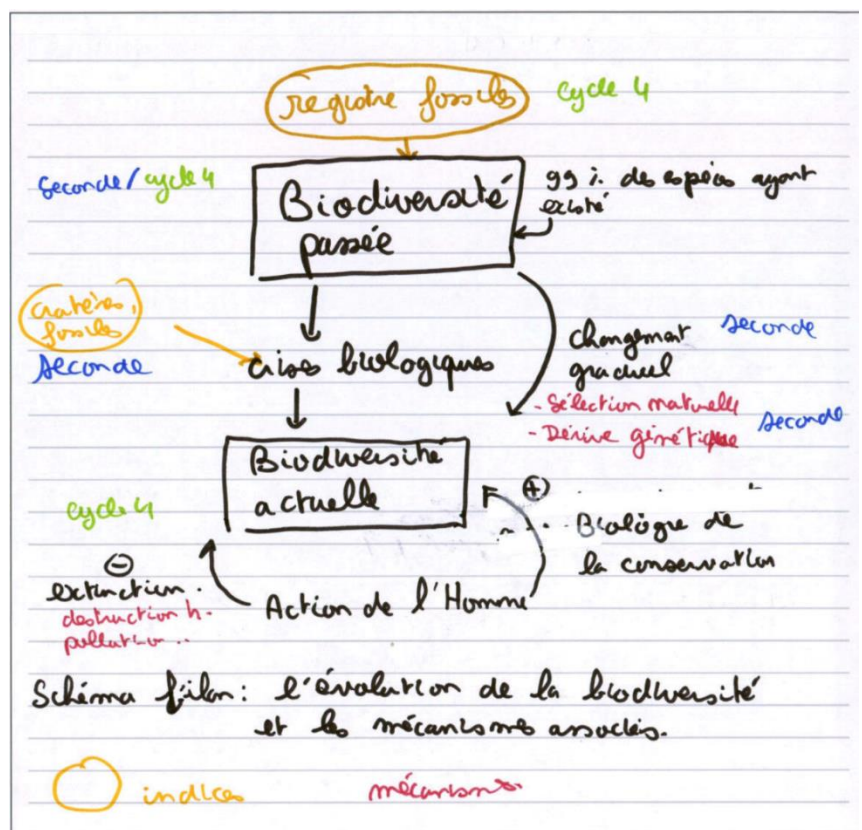 registre fossiles
cycle 4
Seconde / cycle 4
Biodiversité
passée
99 %. des espèces ayant
existé
cratères,
fossiles
Seconde
crises biologiques
changemat
graduel
Seconde
- Sélection naturelle
- Dérive génétique
Seconde
Biodiversité
actuelle
cycle 4
⊕
Biologie de
la conservation
⊖
extinction.
destruction h.
pollution ..
Action de l'Homme
Schéma bilan : l'évolution de la biodiversité
et les mécanismes associés.
indices
mécanismes